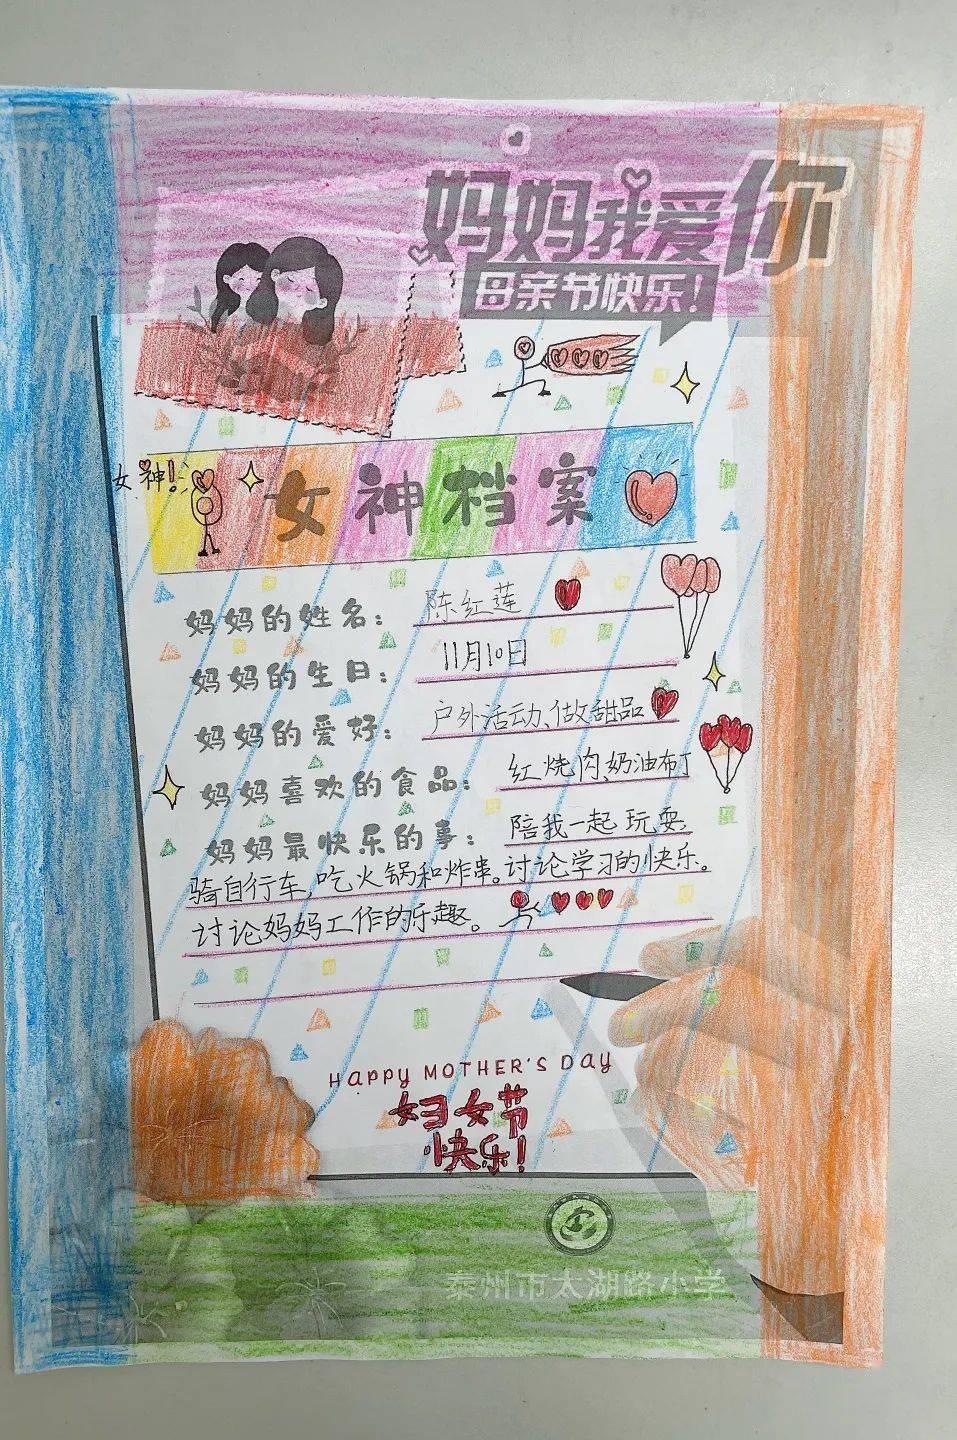 妈妈我爱你
母亲节快乐!
女神!
女神档案
妈妈的姓名: 陈红莲
妈妈的生日: 11月10日
妈妈的爱好: 户外活动、做甜品
妈妈喜欢的食品: 红烧肉、奶油布丁
妈妈最快乐的事: 陪我一起玩耍、
骑自行车、吃火锅和炸串。讨论学习的快乐。
讨论妈妈工作的乐趣。
HAPPY MOTHER'S DAY
妇女节
快乐!
泰州市太湖路小学